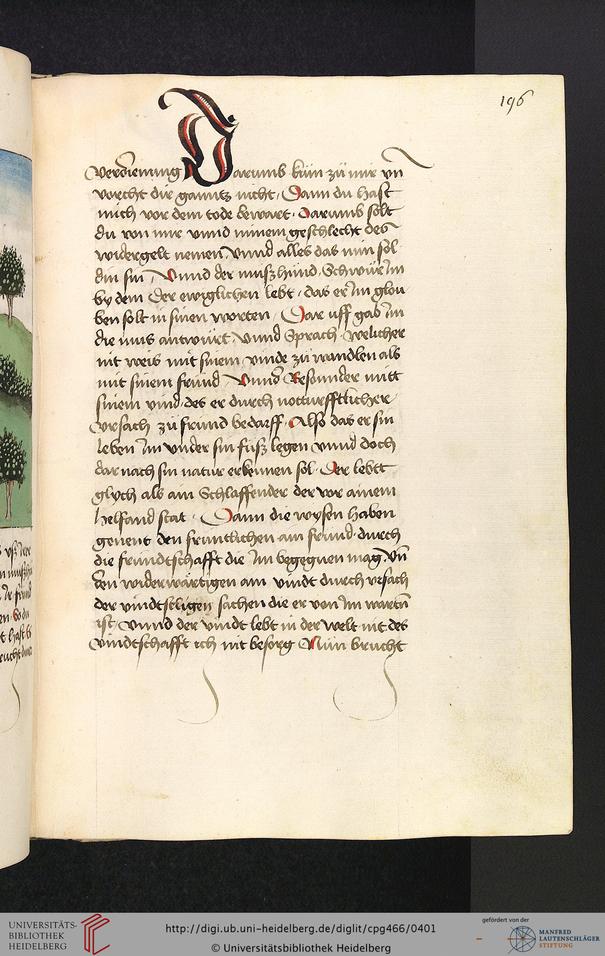 196
verdienung Darumb kum zů mir vn̄
vorcht dir ganntz nicht. Dann du hast
mich vor dem tode bewart. Darumb solt
du von mir vnnd minem geschlecht des
widergelt nemen. Vnnd alles das min sol
din sin. Vnnd der musz hůnd. Schwůr Im
by dem Der ewiglichen lebt. das er Im glou
ben solt in sinen worten. Dar uff gab Im
die mus antwurt. Vnnd Sprach welicher
nit weis mit sinem vinde zů wandlen als
mit sinem frund. Vnnd Besonnder mitt
sinem vind des er durch notturfftlicher
vrsach zů frund bedarff. Also das er sin
leben Im vnder sin fůsz legen vnnd doch
dar nach sin natur erkennen sol. Der lebtt
glych als ain Schlaffender der vor ainem
helfand stat. Dann die wysen haben
genent den fruntlichen ain frund durch
die frundtschafft die Im begegnen mag. Vn̄
den widerwärtigen ain vindt durch vrsach
der vindtseligen sachen die er von Im wartn̄
ist. Vnnd der vindt lebt in der welt nit des
vindtschafft ich nit besorg Nun brucht
UNIVERSITÄTS-
BIBLIOTHEK
HEIDELBERG
http://digi.ub.uni-heidelberg.de/diglit/cpg466/0401
© Universitätsbibliothek Heidelberg
gefördert von der
MANFRED
LAUTENSCHLÄGER
STIFTUNG